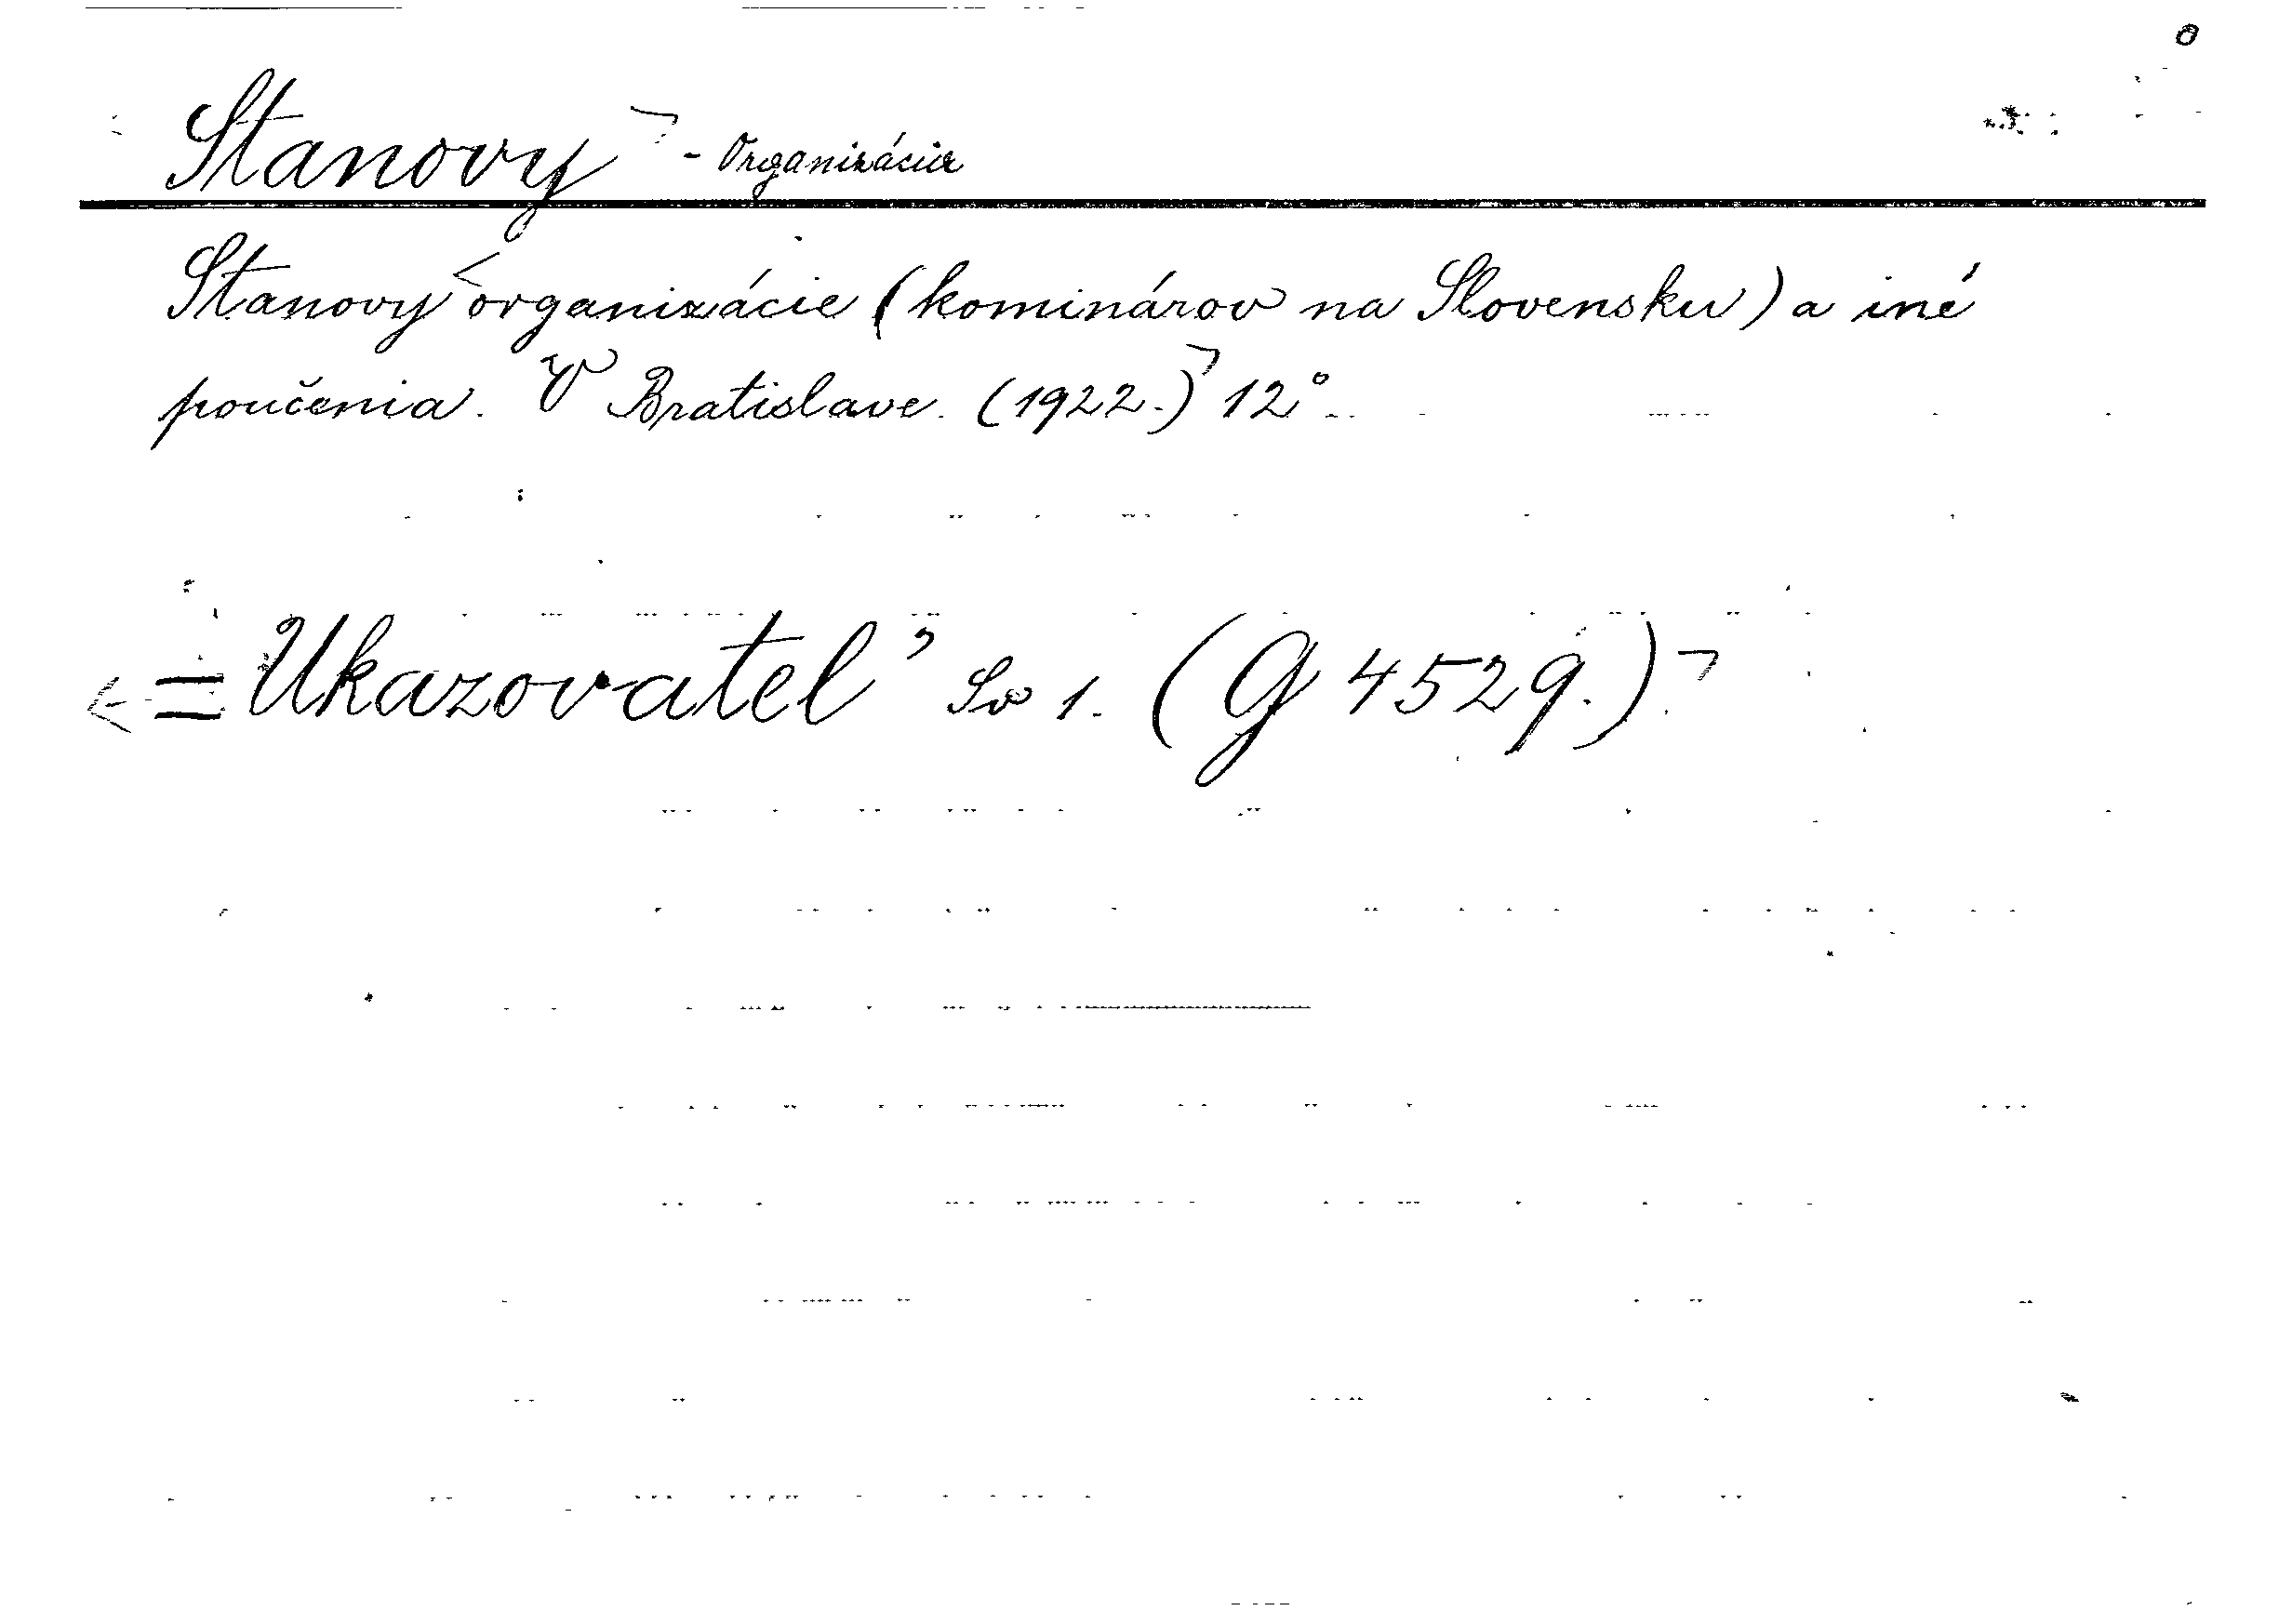 Stanovy - Organizácia
Stanovy organizácie (kominárov na Slovensku) a iné
poučenia. V Bratislave. (1922.) 12°.
= Ukazovateľ Sv 1. (G 4529.)